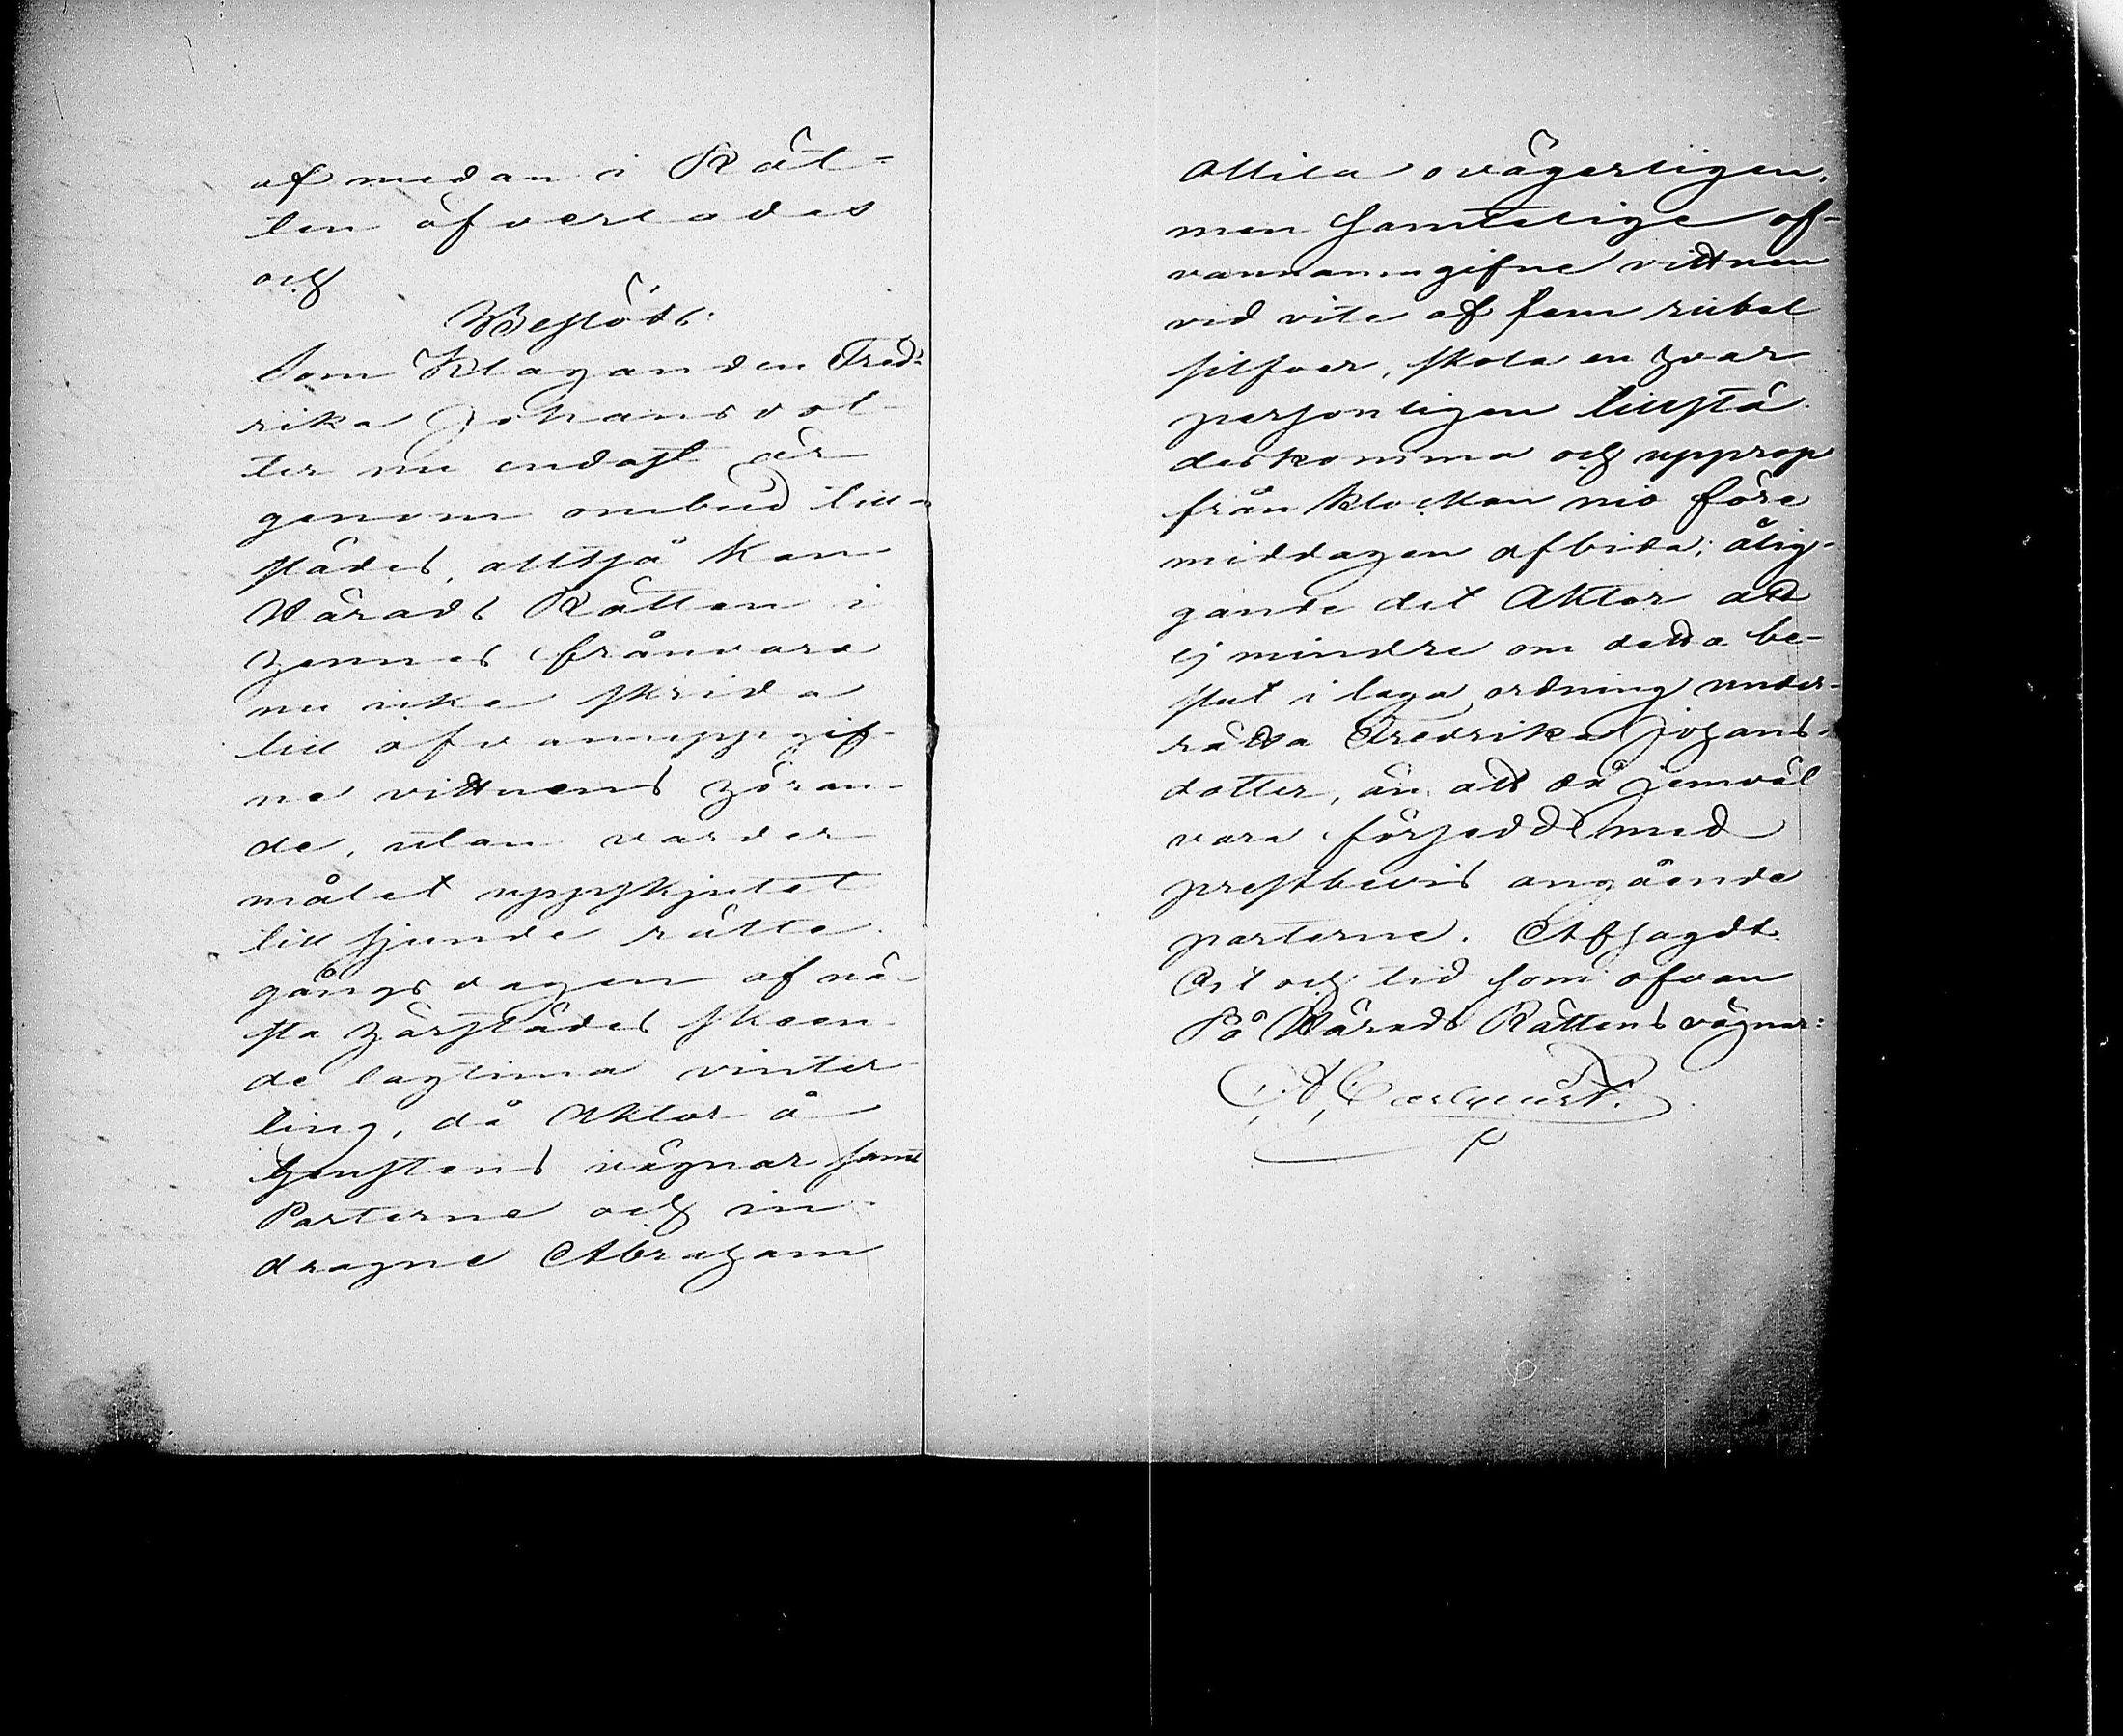 af medan i Rät-
ten öfverlades
och
Beslöts:
Som Klaganden Fred-
rika Johansdot-
ter nu endast är
genom ombud till-
städes, alltså kan
Härads Rätten i
hennes frånvaro
nu icke skrida
till ofvanuppgif-
ne vittnens höran-
de, utan varder
målet uppskjutet
till sjunde rätte-
gångsdagen af nä-
sta härstädes skeen-
de lagtima vinter
ting, då Aktor å
tjenstens vägnar samt
Parterne och in-
dragne Abraham
Attila ovägerligen,
men samtelige of-
vannamngifne vittnen
vid vite af fem rubel
silfver, skola en hvar
personligen tillstä-
deskomma och upprop
från klockan nio före
middagen afbida; ålig-
gande det Aktor att
ej mindre om detta be-
slut i laga ordning under-
rätta Fredrika Johans-
dotter, än att då jemväl
vara försedd med
prestbevis angående
parterne. Afsagdt.
Ort och tid som ofvan
På Härads Rättens vägnar: